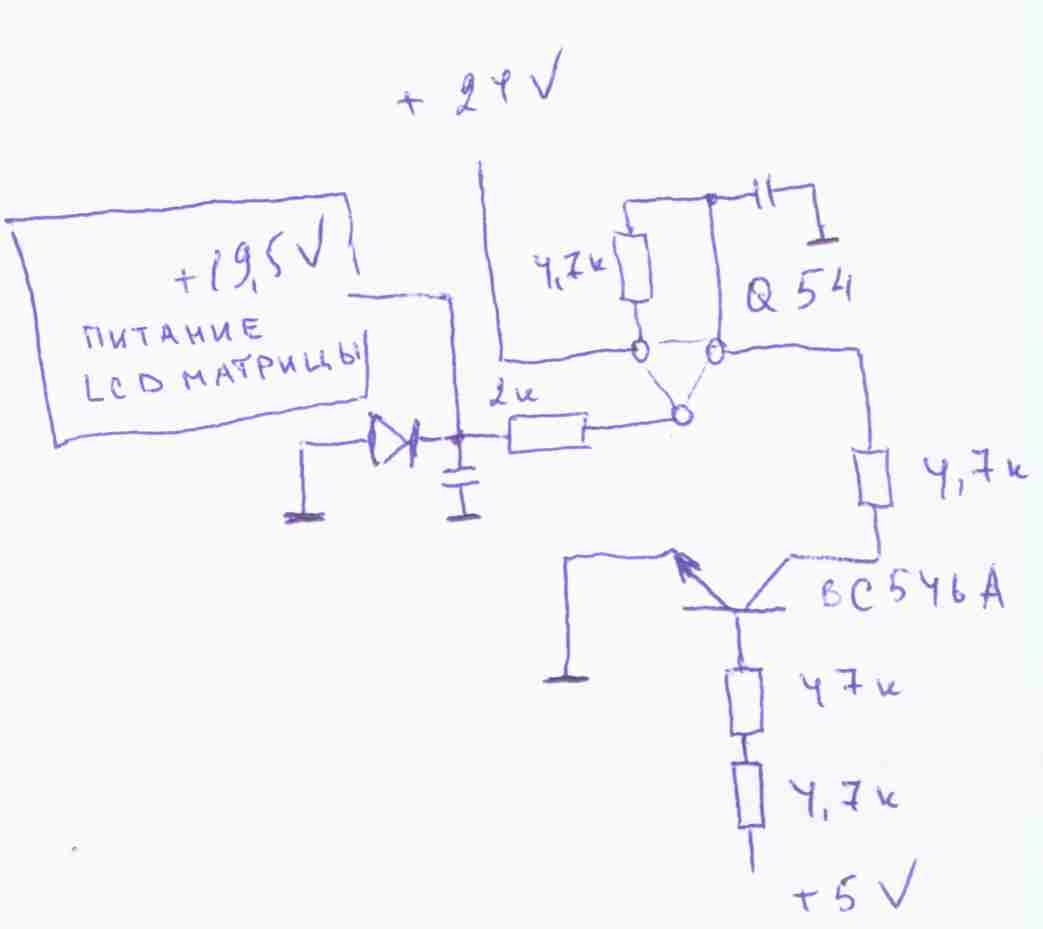 + 24 V
+19,5 V
ПИТАНИЕ
LCD МАТРИЦЫ
4,7к
Q 54
2к
4,7к
BC546A
47к
4,7к
+5 V